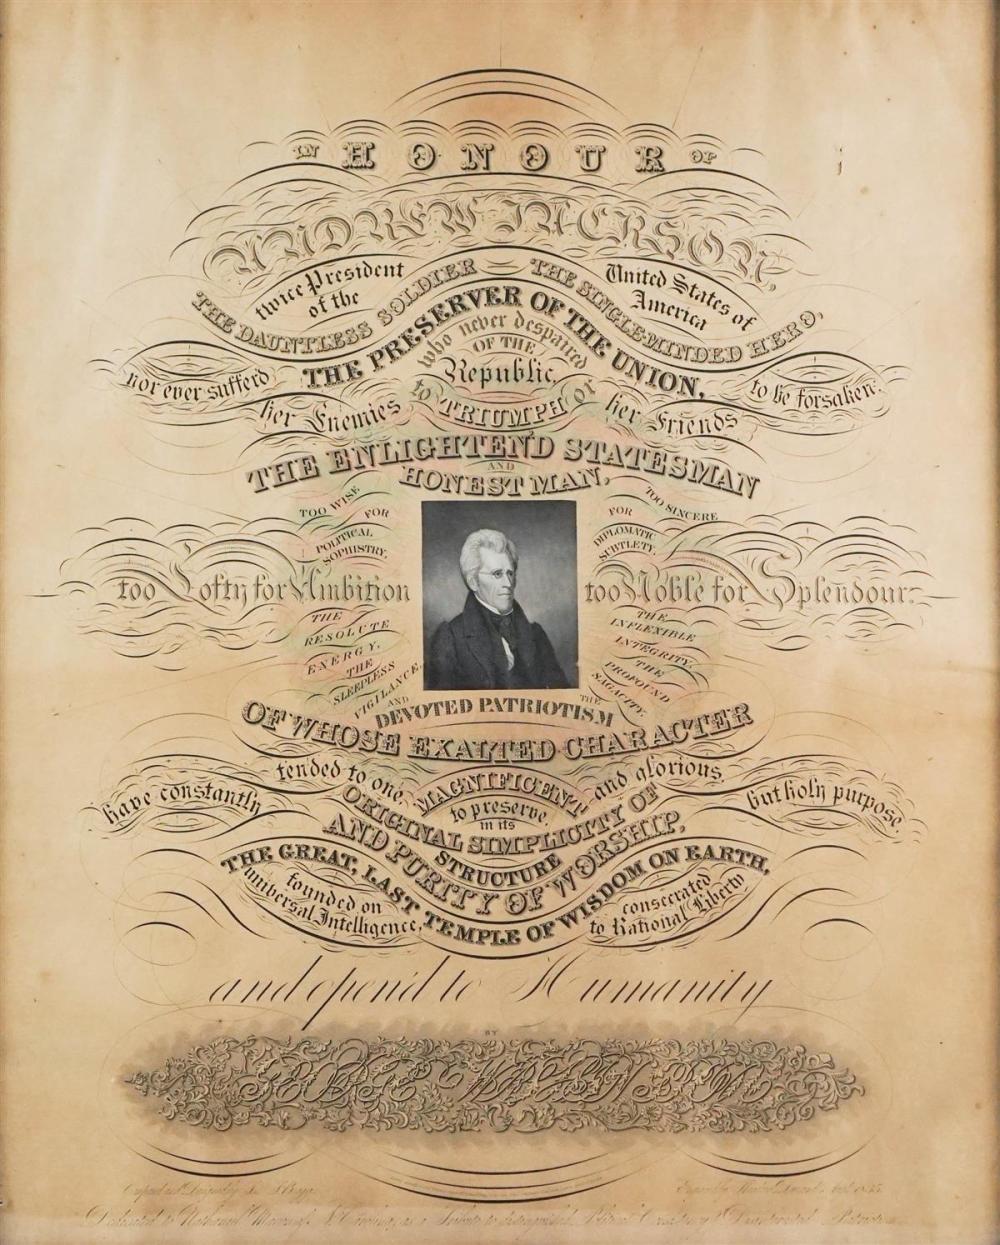 IN HONOUR OF
ANDREW JACKSON,
twice President of the United States of America
THE DAUNTLESS SOLDIER — THE SINGLE-MINDED HERO,
THE PRESERVER OF THE UNION,
who never despaired
OF THE
Republic,
nor ever sufferd
her Enemies
to TRIUMPH or
her Friends
to be forsaken:
THE ENLIGHTEN'D STATESMAN
AND
HONEST MAN,
TOO WISE FOR
POLITICAL
SOPHISTRY,
TOO SINCERE
FOR DIPLOMATIC
SUBTLETY,
too Lofty for Ambition
too Noble for Splendour:
THE
RESOLUTE
ENERGY,
THE
SLEEPLESS
VIGILANCE,
THE
INFLEXIBLE
INTEGRITY,
THE
PROFOUND
SAGACITY,
AND THE
DEVOTED PATRIOTISM
OF WHOSE EXALTED CHARACTER
have constantly
tended to one,
MAGNIFICENT
and glorious,
but holy purpose,
to preserve,
in its
ORIGINAL SIMPLICITY OF
STRUCTURE
AND PURITY OF WORSHIP,
THE GREAT, LAST TEMPLE OF WISDOM ON EARTH,
founded on
universal Intelligence,
consecrated
to Rational Liberty
and open'd to Humanity
BY
Dedicated to Nathaniel
as a Tribute to distinguished Political Consistency &